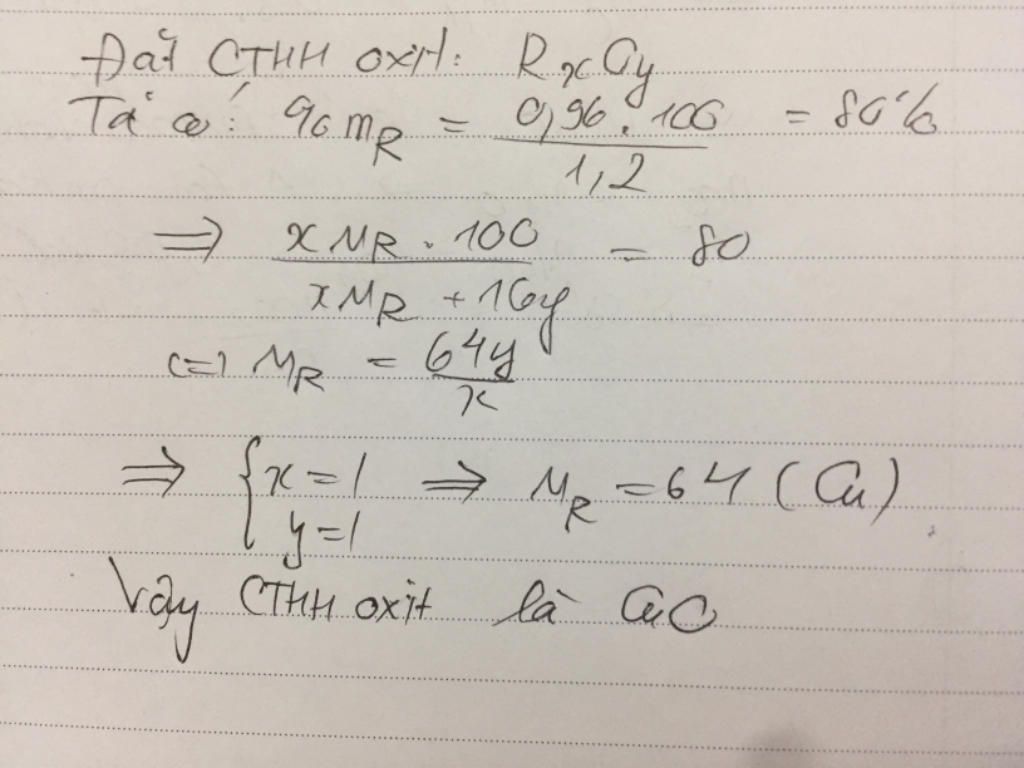 Đặt CTHH oxit: RxOy
Ta có: %mR = 0,96.100 / 1,2 = 80%
=> xMR.100 / xMR + 16y = 80
<=> MR = 64y / x
=> { x=1 y=1 => MR = 64 (Cu)
Vậy CTHH oxit là CuO